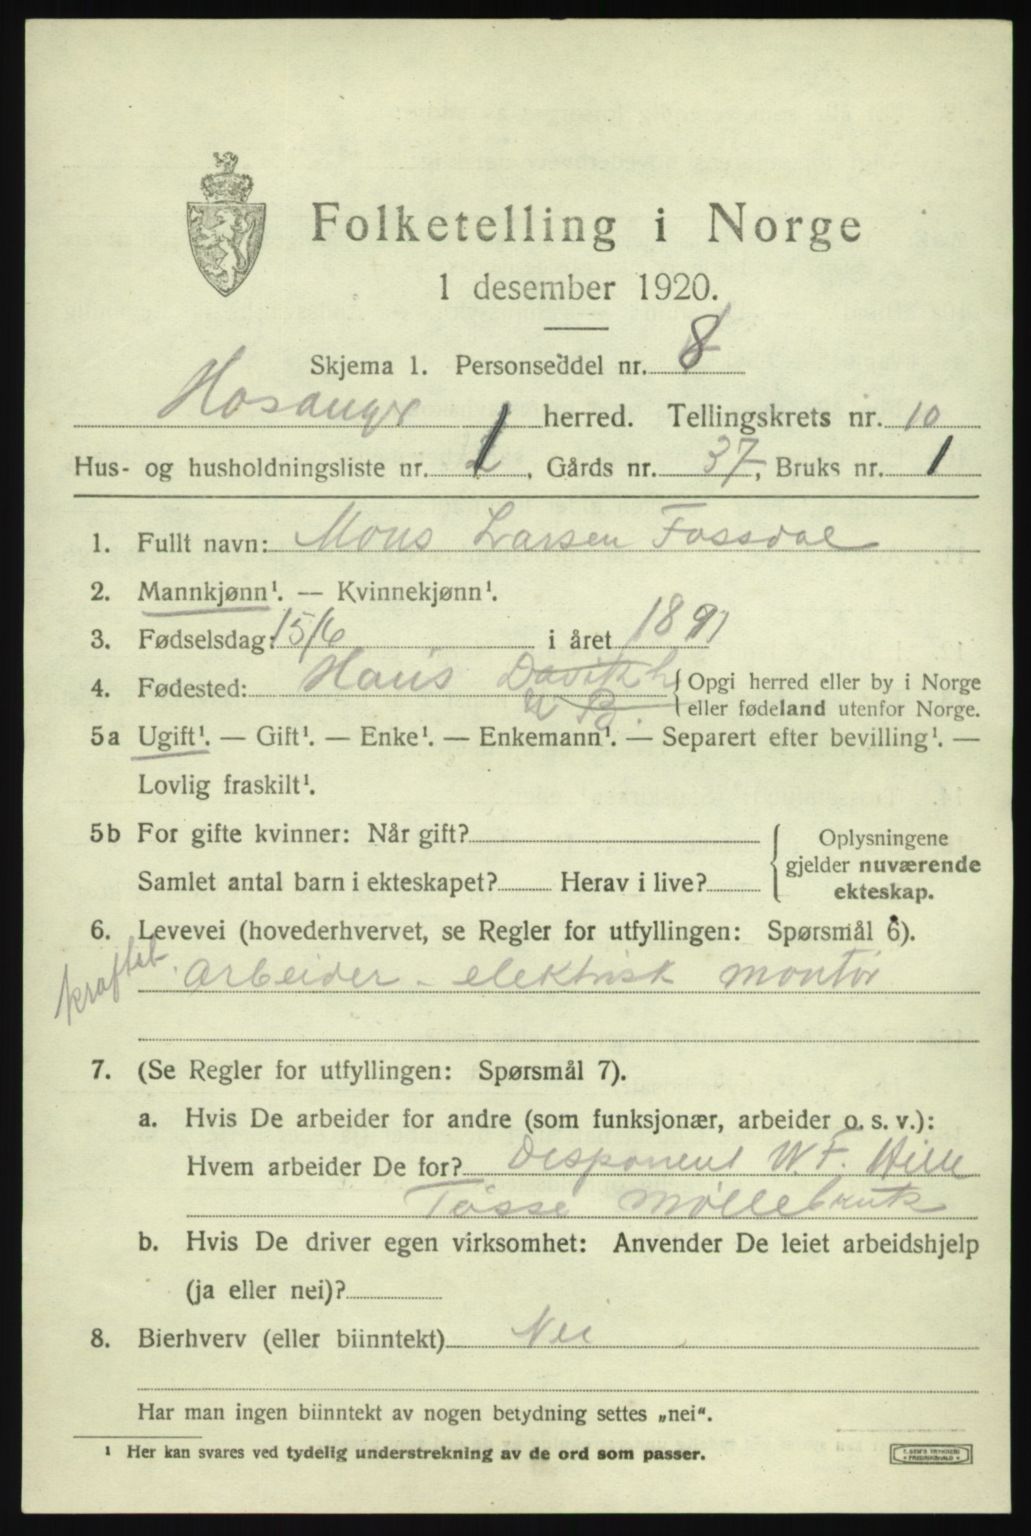 Folketelling i Norge
1 desember 1920.
Skjema 1. Personseddel nr. 8
Hosanger herred. Tellingskrets nr. 10
Hus- og husholdningsliste nr. 1, Gårds nr. 37, Bruks nr. 1
1. Fullt navn: Mons Larsen Fossdal
2. Mannkjønn¹. — Kvinnekjønn¹.
3. Fødselsdag: 15/6 i året 1891
4. Fødested: Haus Davik h { Opgi herred eller by i Norge
eller fødeland utenfor Norge.
5a Ugift¹. — Gift¹. — Enke¹. — Enkemann¹. — Separert efter bevilling¹. —
Lovlig fraskilt¹.
5b For gifte kvinner: Når gift?
Samlet antal barn i ekteskapet? Herav i live?
{ Oplysningene
gjelder nuværende
ekteskap.
6. Levevei (hovederhvervet, se Regler for utfyllingen: Spørsmål 6).
Arbeider - elektrisk montør
7. (Se Regler for utfyllingen: Spørsmål 7).
a. Hvis De arbeider for andre (som funksjonær, arbeider o. s. v.):
Hvem arbeider De for? Disponent W. F. Hille
Tøsse Møllebruk
b. Hvis De driver egen virksomhet: Anvender De leiet arbeidshjelp
(ja eller nei)?
8. Bierhverv (eller biinntekt) Nei
Har man ingen biinntekt av nogen betydning settes „nei“.
¹ Her kan svares ved tydelig understrekning av de ord som passer.